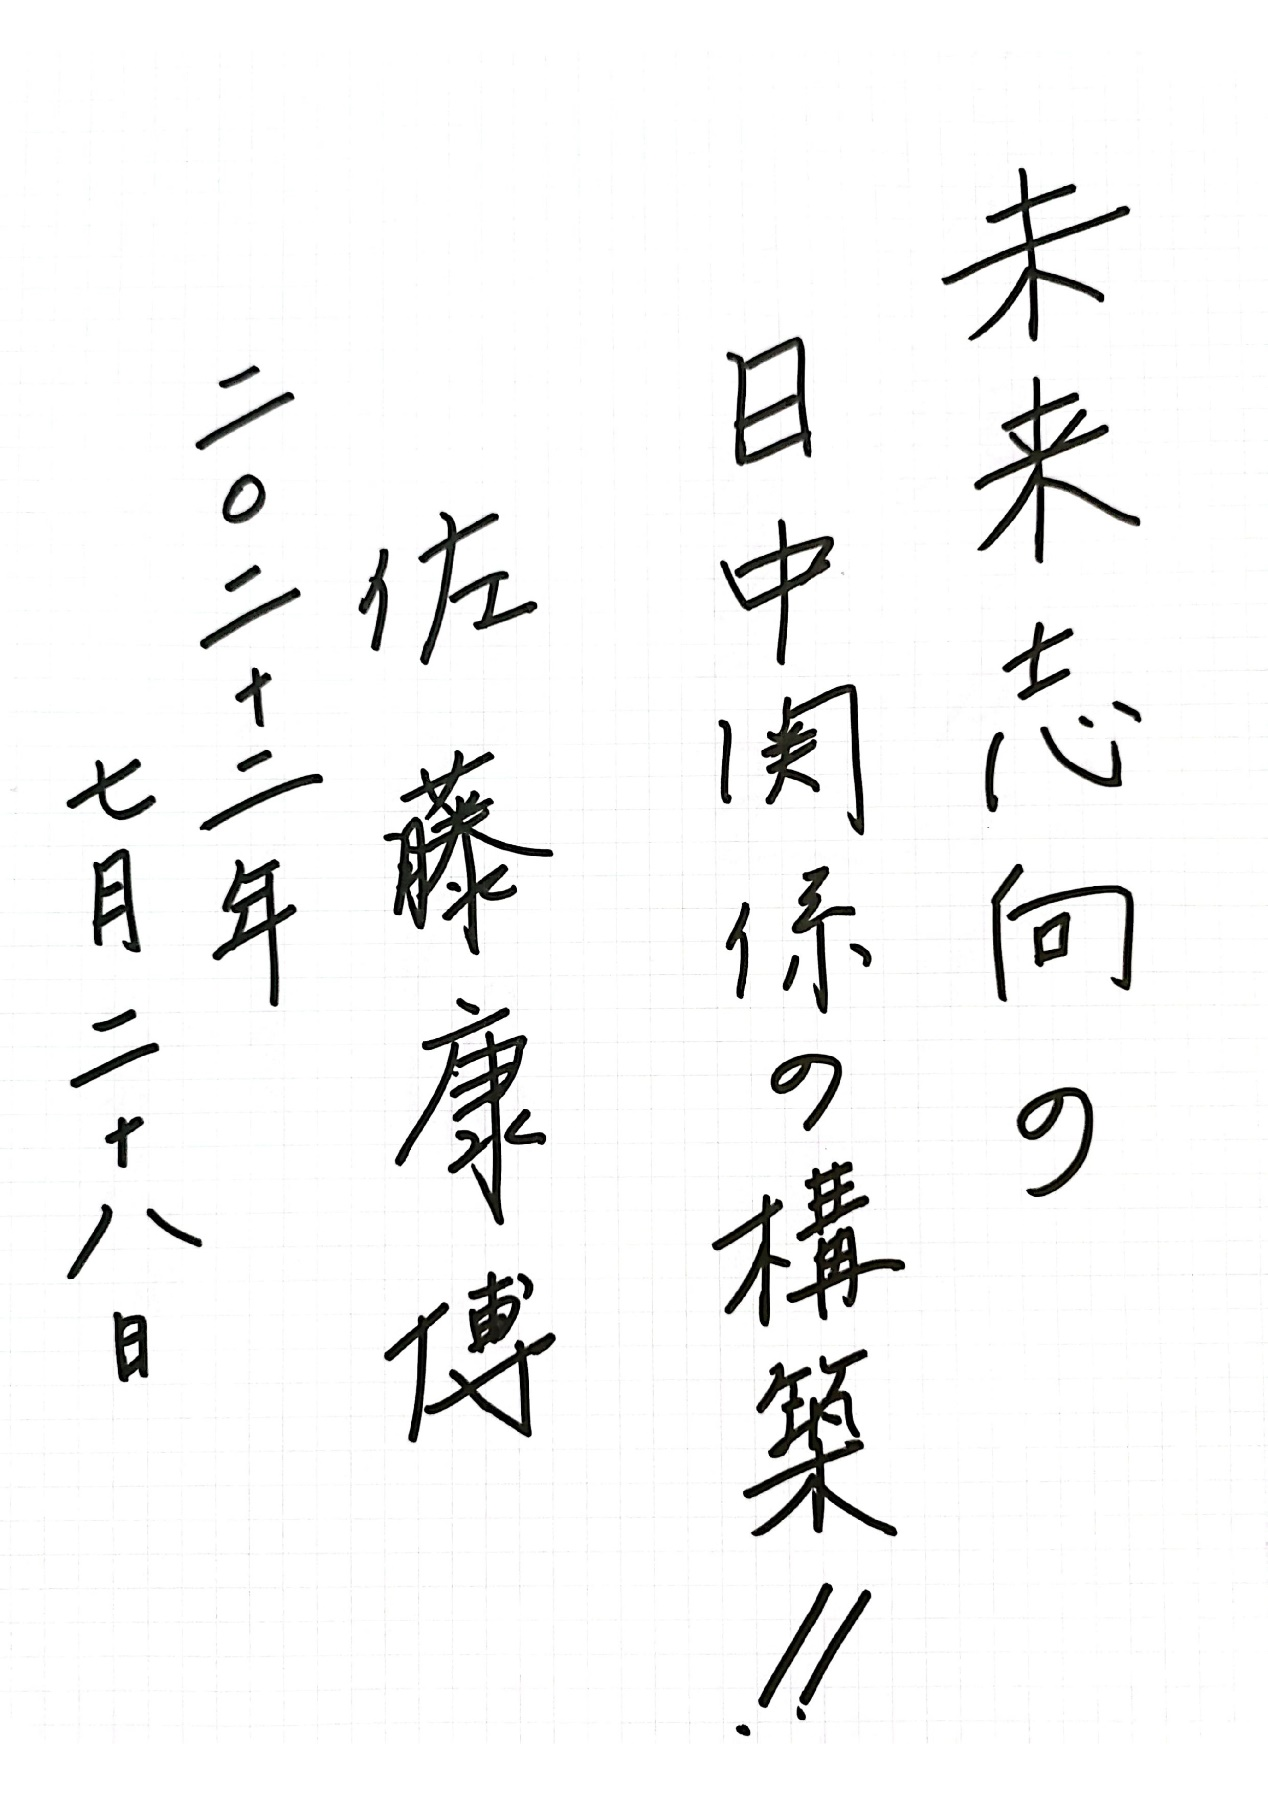 未来志向の
日中関係の構築!!
佐藤康博
二〇二十二年
七月二十八日